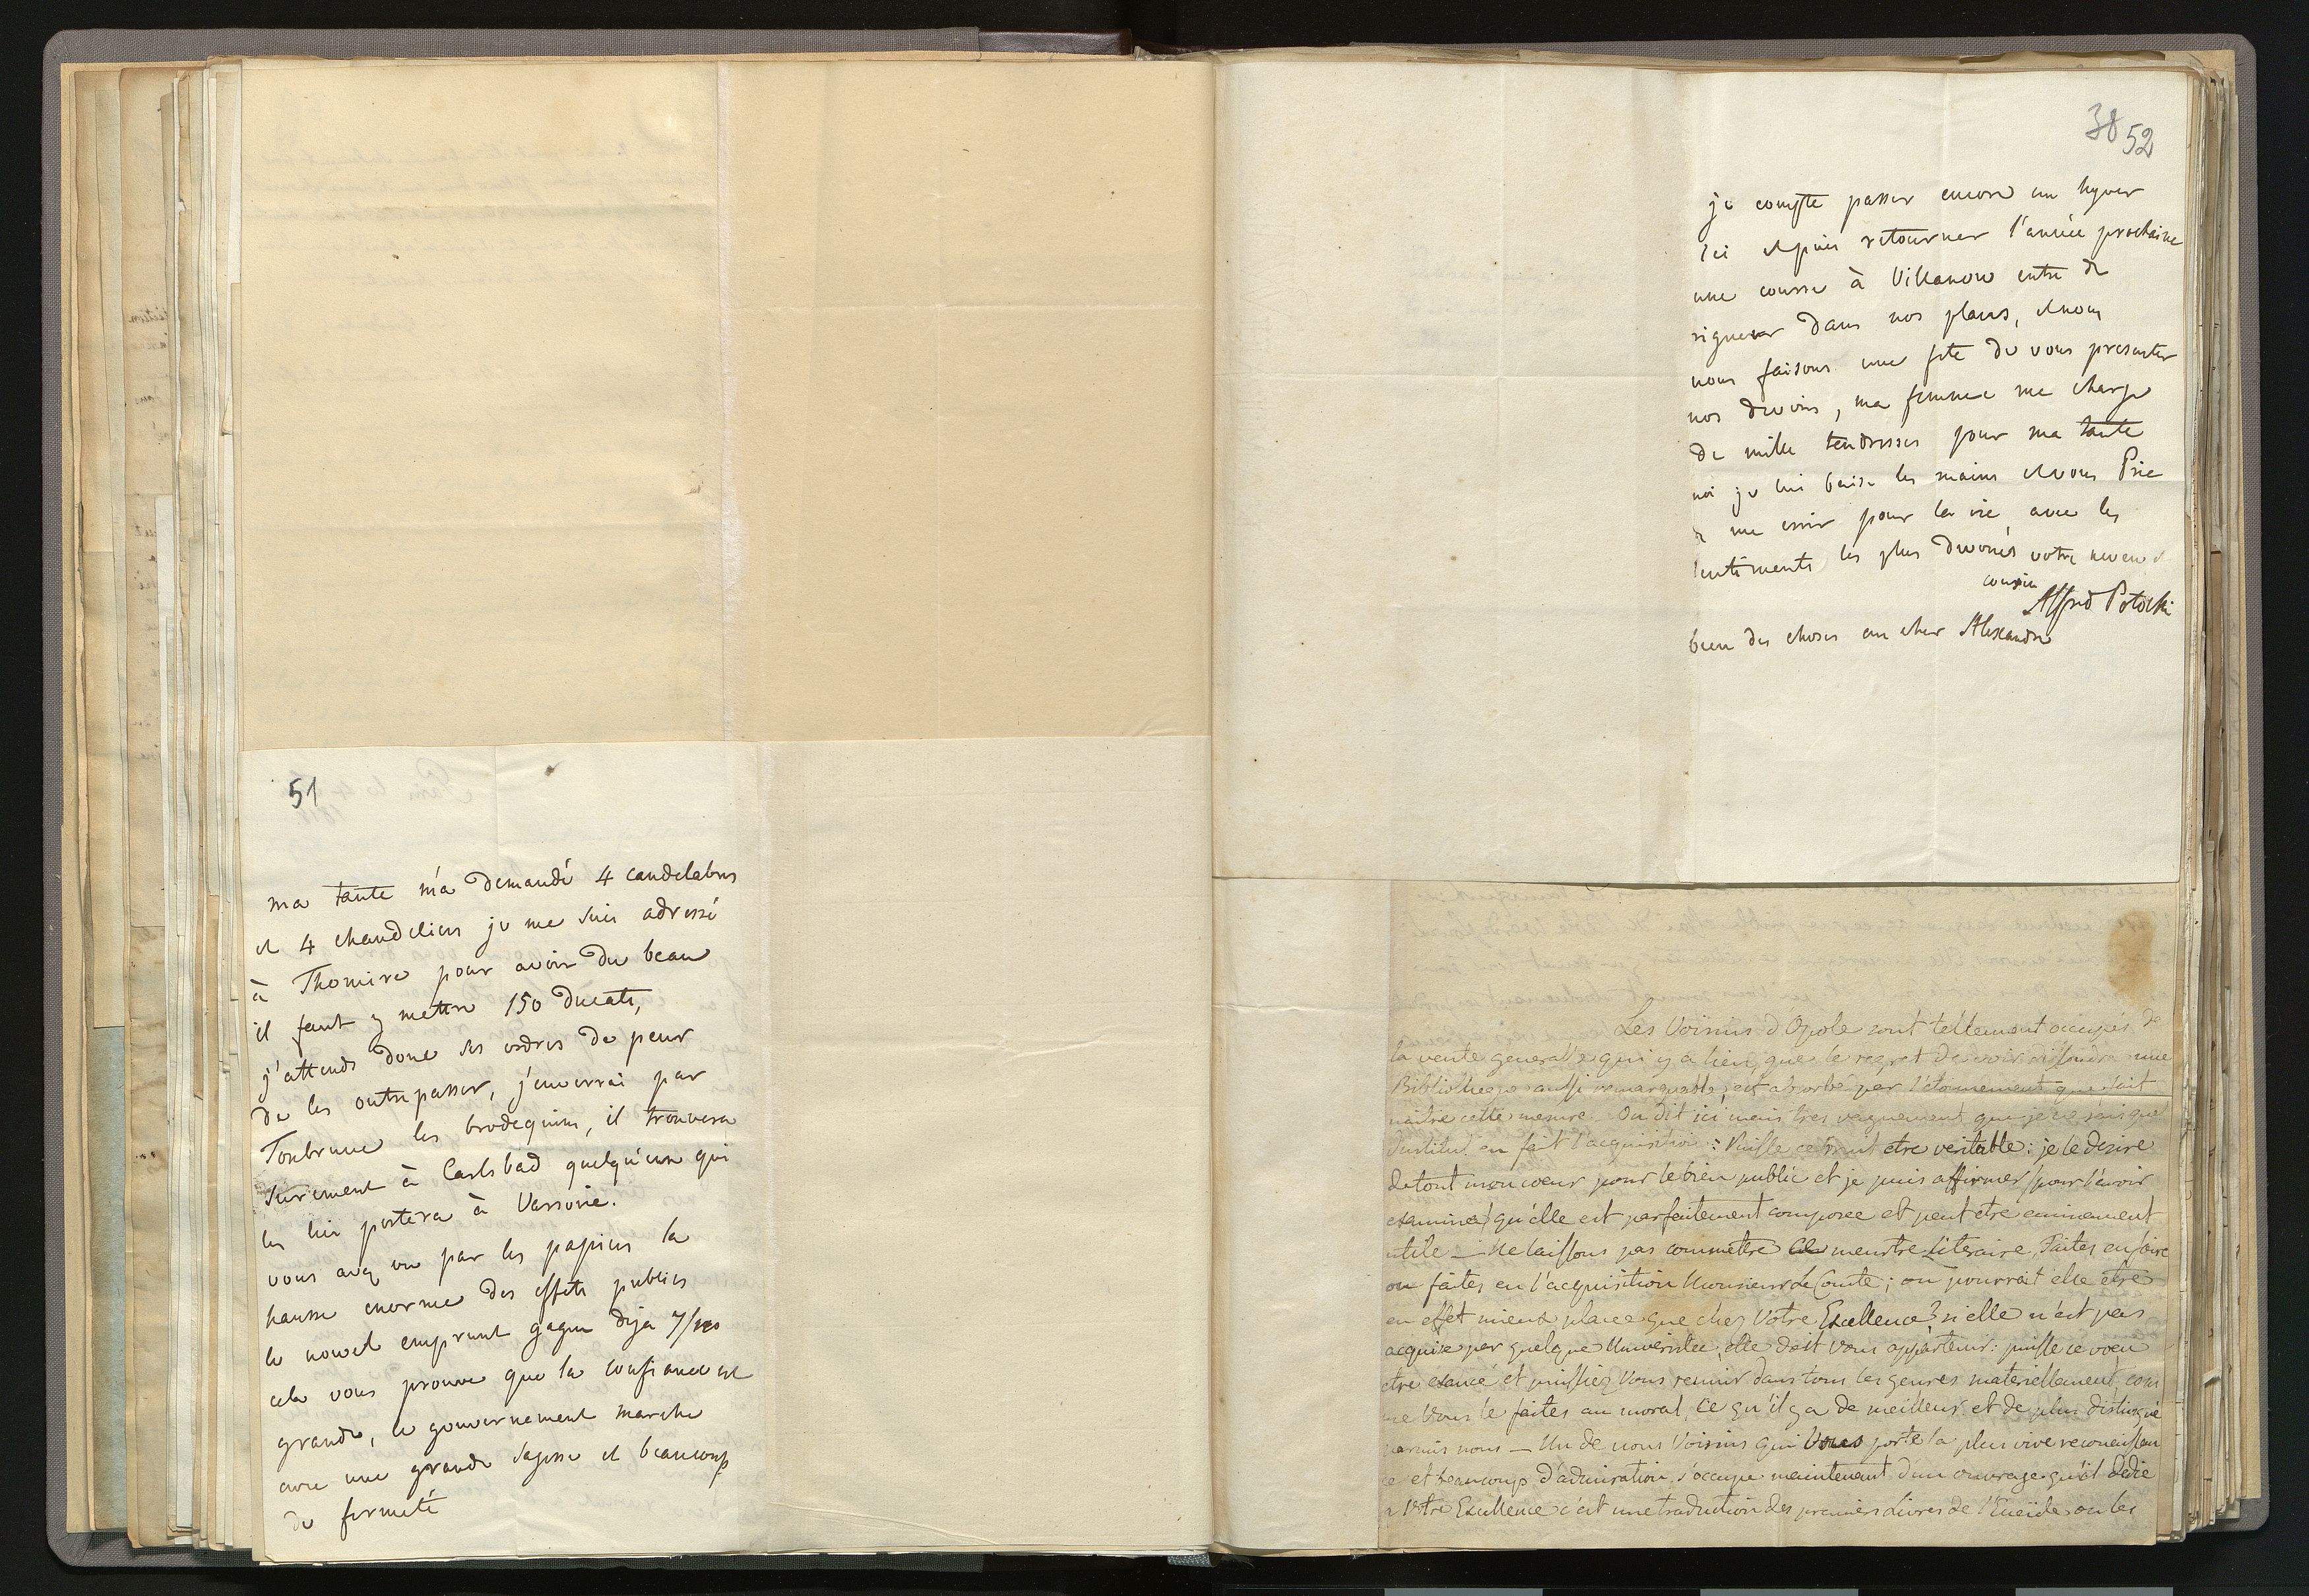 51
ma tante m'a demandé 4 candelabres
et 4 chandeliers je me suis adressé
à Thomire pour avoir du beau
il faut y mettre 150 ducats,
j'attends donc ses ordres de peur
de les outrepasser, j'enverrai par
les brodequins, il trouvera
surement à Carlsbad quelqu'un qui
les lui portera à Varsovie.
vous avez vu par les papiers la
hausse enorme des effets publics
le nouvel emprunt gagne dija 7/100
cela vous prouve que la confiance est
grande, le gouvernement marche
avec une grande sagesse et beaucoup
de fermeté
38 52
je compte passer encore un hyver
ici et puis retourner l'année prochaine
une course à Villanow entre de
rigueur dans nos plans, et nous
nous faisons une fete de vous presenter
nos devoirs, ma femme me charge
de mille tendresses pour ma tante
moi je lui baise les mains et vous Prie
de me croire pour la vie, avec les
sentiments les plus devoués votre neveu et
cousin
Alfred Potocki
bien des choses au cher Alexandre
Les Voisins d'Opole sont tellement occupés de
la vente generalle qui y a lieu, que le regret de voir dissoudre une
Biblioheqe aussi remarquable, est absorbé par l'étonnement que fait
naitre cette mesure On dit ici mais tres vaguement que je ne sais quel
Institut en fait l'acquisition : Puisse ce bruit etre veritable : je le desire
de tout mon coeur pour le bien public et je puis affirmer (pour l'avoir
examinée) qu'elle est parfaitement composee et peut etre eminement
utile — Ne laissons pas commettre ce meurtre Literaire, Faites en faire
ou faites en l'acquisition Monsieur Le Comte ; ou pourrait elle etre
en effet mieux placee que chez Votre Excellence ? si elle n'est pas
acquise par quelque Université, elle doit Vous appartenir : puisse ce voeu
etre exaucé et puissiez Vous reunir dans tous les genres materiellement com
me Vous le faites au moral, ce qu'il y a de meilleur et de plus distingué
parmis nous — Un de nous Voisins qui Vous porte la plus vive reconaissan
ce et beaucoup d'admiration, s'occupe maintenant d'un ouvrage qu'il dedie
a Votre Excellence c'est une traduction des premiers Livres de l'Eneide ou les